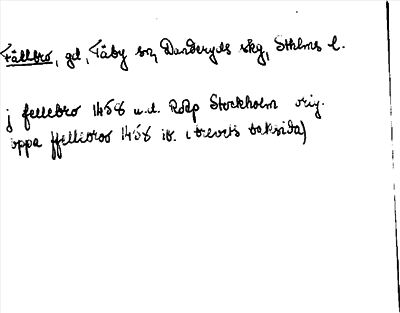 Fällbro, gd, Täby sn, Danderyds skg, Sthlms l.
j fellebro 1458 u.d. RAp Stockholm orig.
oppa ffellebroo 1458 ib. (brevets baksida)